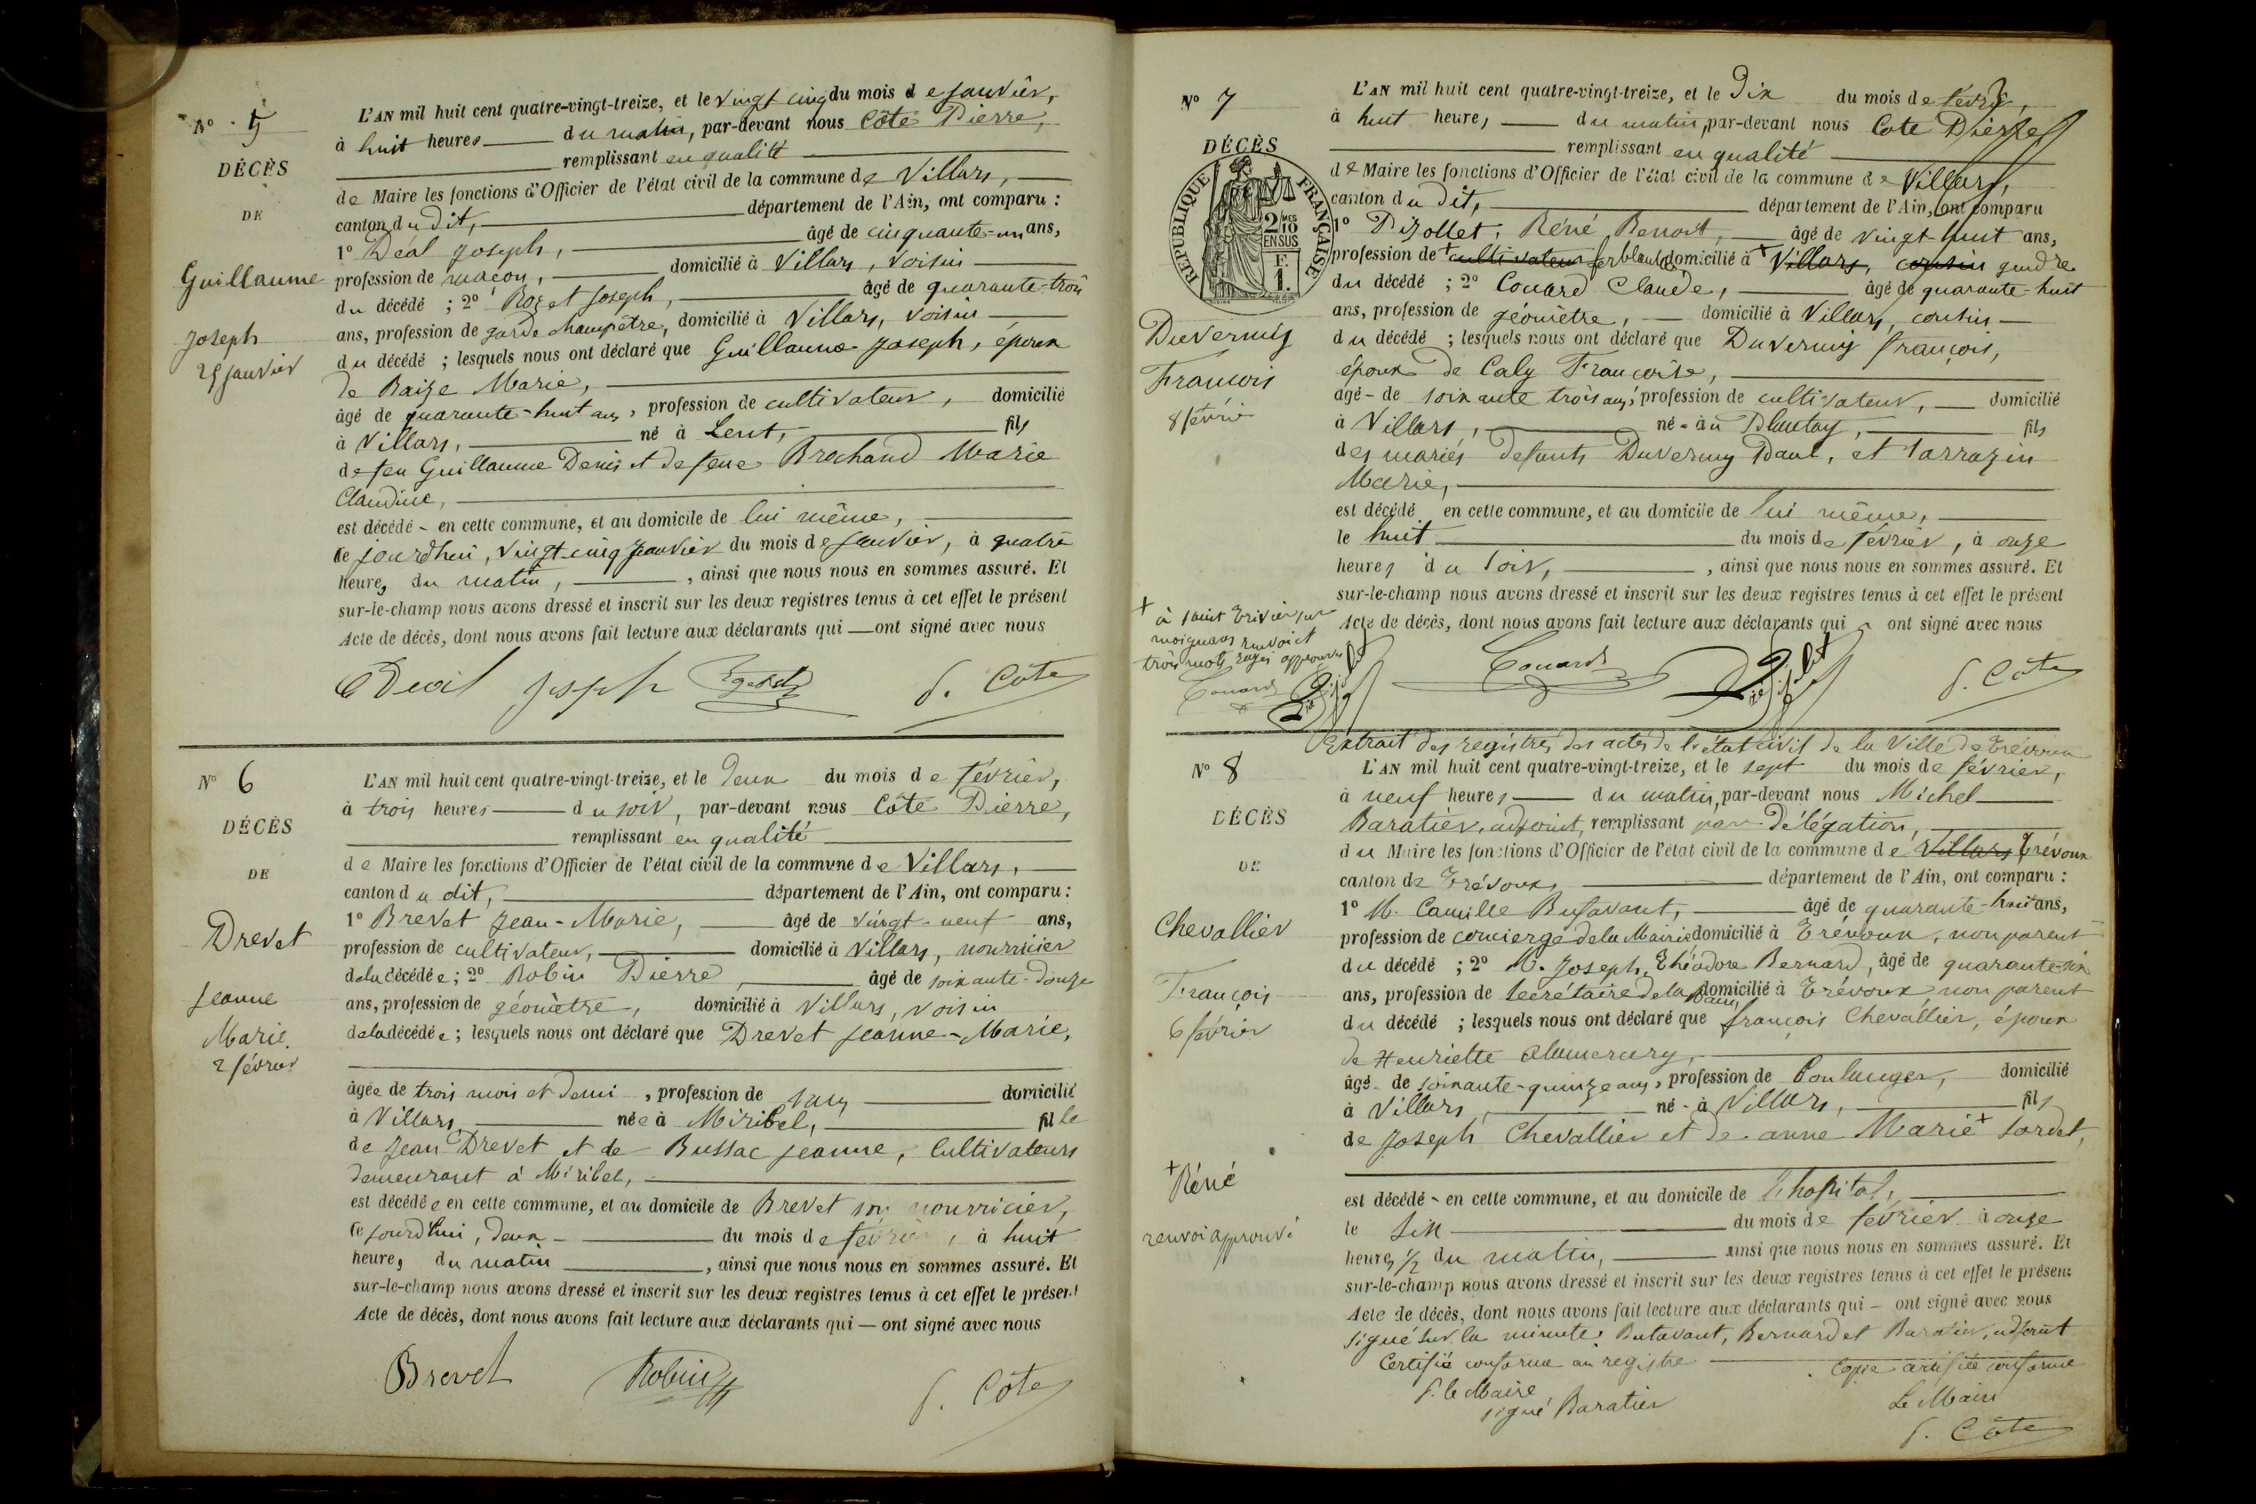 N° 5
DÉCÈS
DE
Guillaume
Joseph
25 Janvier
L'AN mil huit cent quatre-vingt-treize, et le vingt cinq du mois de Janvier,
à huit heures du matin, par-devant nous Côte Pierre,
remplissant en qualité
de Maire les fonctions d'Officier de l'état civil de la commune de Villars,
canton du dit, département de l'Ain, ont comparu :
1° Déal Joseph, âgé de cinquante-un ans,
profession de maçon, domicilié à Villars, voisin
du décédé ; 2° Rozet Joseph, âgé de quarante-trois
ans, profession de garde champêtre, domicilié à Villars, voisin
du décédé ; lesquels nous ont déclaré que Guillaume Joseph, époux
de Baize Marie,
âgé de quarante-huit ans, profession de cultivateur, domicilié
à Villars, né à Lent, fils
de feu Guillaume Denis et de feue Brochand Marie
Claudine,
est décédé en cette commune, et au domicile de lui même,
ce jourd'hui, vingt-cinq janvier du mois de Janvier, à quatre
heures du matin, ainsi que nous nous en sommes assuré. Et
sur-le-champ nous avons dressé et inscrit sur les deux registres tenus à cet effet le présent
Acte de décès, dont nous avons fait lecture aux déclarants qui — ont signé avec nous
Joseph P. Côte
N° 6
DÉCÈS
DE
Drevet
Jeanne
Marie.
2 février
L'AN mil huit cent quatre-vingt-treize, et le deux du mois de février,
à trois heures du soir, par-devant nous Côte Pierre,
remplissant en qualité
de Maire les fonctions d'Officier de l'état civil de la commune de Villars,
canton du dit, département de l'Ain, ont comparu :
1° Brevet Jean-Marie, âgé de vingt-neuf ans,
profession de cultivateur, domicilié à Villars, nourricier
de la décédée ; 2° Robin Pierre, âgé de soixante-douze
ans, profession de géomètre, domicilié à Villars, voisin
de la décédée ; lesquels nous ont déclaré que Drevet Jeanne-Marie,
âgée de trois mois et demi, profession de sans domicilié
à Villars, née à Miribel, fille
de Jean Drevet et de Bussac Jeanne, cultivateurs
demeurant à Miribel,
est décédée en cette commune, et au domicile de Brevet son nourricier,
ce jourd'hui, deux du mois de février, à huit
heures du matin, ainsi que nous nous en sommes assuré. Et
sur-le-champ nous avons dressé et inscrit sur les deux registres tenus à cet effet le présent
Acte de décès, dont nous avons fait lecture aux déclarants qui — ont signé avec nous
Brevet Robin P. Côte
N° 7
DÉCÈS
RÉPUBLIQUE FRANÇAISE
2/10 MES EN SUS
1 F.
Duvernay
François
8 février
L'AN mil huit cent quatre-vingt-treize, et le Dix du mois de février,
à huit heures du matin, par-devant nous Cote Pierre
remplissant en qualité
de Maire les fonctions d'Officier de l'état civil de la commune de Villars,
canton du dit, département de l'Ain, ont comparu
1° Pizollet, Réné Benoit, âgé de vingt-huit ans,
profession de + cultivateur ferblantier domicilié à + Villars, cousin gendre
du décédé ; 2° Couard Claude, âgé de quarante-huit
ans, profession de géomètre, domicilié à Villars, cousin
du décédé ; lesquels nous ont déclaré que Duvernay François,
époux de Caly Françoise,
âgé de soixante trois ans, profession de cultivateur, domicilié
à Villars, né au Plantay, fils
des mariés defunts Duvernay Paul, et Tarrazin
Marie,
est décédé en cette commune, et au domicile de lui même,
le huit du mois de février, à onze
heures du soir, ainsi que nous nous en sommes assuré. Et
sur-le-champ nous avons dressé et inscrit sur les deux registres tenus à cet effet le présent
Acte de décès, dont nous avons fait lecture aux déclarants qui ont signé avec nous
+ à saint Trivier sur
moignans renvoi et
trois mots rayés approuvés
Couard
Couard P. Côte
Extrait des registres des actes de l'état civil de la Ville de Trévoux
N° 8
DÉCÈS
DE
Chevallier
François
6 février
+ Réné
renvoi approuvé
L'AN mil huit cent quatre-vingt-treize, et le sept du mois de février,
à neuf heures du matin, par-devant nous Michel
Baratier, adjoint, remplissant par Délégation,
du Maire les fonctions d'Officier de l'état civil de la commune de Villars Trévoux
canton de Trévoux, département de l'Ain, ont comparu :
1° M. Camille Butavant, âgé de quarante-huit ans,
profession de concierge de la Mairie domicilié à Trévoux, non parent
du décédé ; 2° M. Joseph, Théodore Bernard, âgé de quarante-six
ans, profession de secrétaire de la Mairie domicilié à Trévoux non parent
du décédé ; lesquels nous ont déclaré que françois Chevallier, époux
de Henriette Alamercery,
âgé de soixante-quinze ans, profession de Boulanger, domicilié
à Villars, né à Villars, fils
de Joseph Chevallier et de anne Marie + Sordet,
est décédé en cette commune, et au domicile de l'hopital,
le six du mois de février à onze
heures 1/2 du matin, ainsi que nous nous en sommes assuré. Et
sur-le-champ nous avons dressé et inscrit sur les deux registres tenus à cet effet le présent
Acte de décès, dont nous avons fait lecture aux déclarants qui — ont signé avec nous
signé sur la minute : Butavant, Bernard et Baratier, adjoint
Certifié conforme au registre
P. le Maire
signé Baratier
Copie certifiée conforme
Le Maire
P. Côte